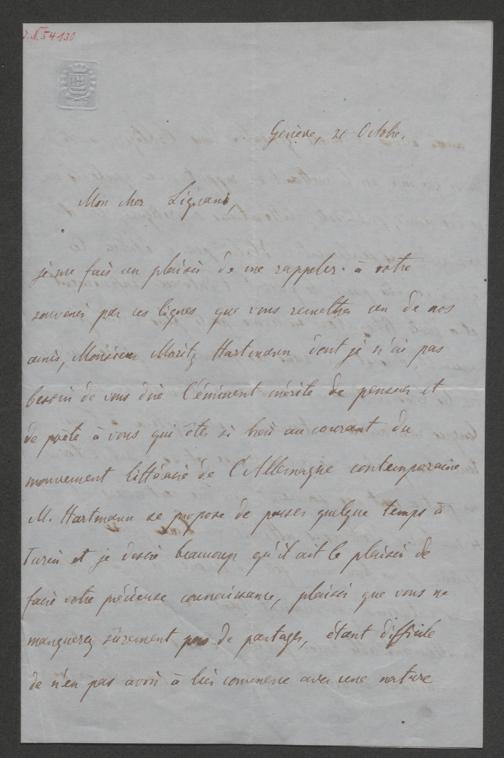 Genève, 21 Octobre.
Mon cher Lignani,
je me fais un plaisir de me rappeler à votre
souvenir par ces lignes que vous remettra un de nos
amis, Monsieur Moritz Hartmann dont je n'ai pas
besoin de vous dire l'éminent mérite de penseur et
de poète à vous qui êtes si bien au courant du
mouvement littéraire de l'Allemagne contemporaine.
M. Hartmann se propose de passer quelque temps à
Turin et je desire beaucoup qu'il ait le plaisir de
faire votre précieuse connaissance, plaisir que vous ne
manquerez sûrement pas de partager, étant difficile
de n'en pas avoir à lier commerce avec une nature